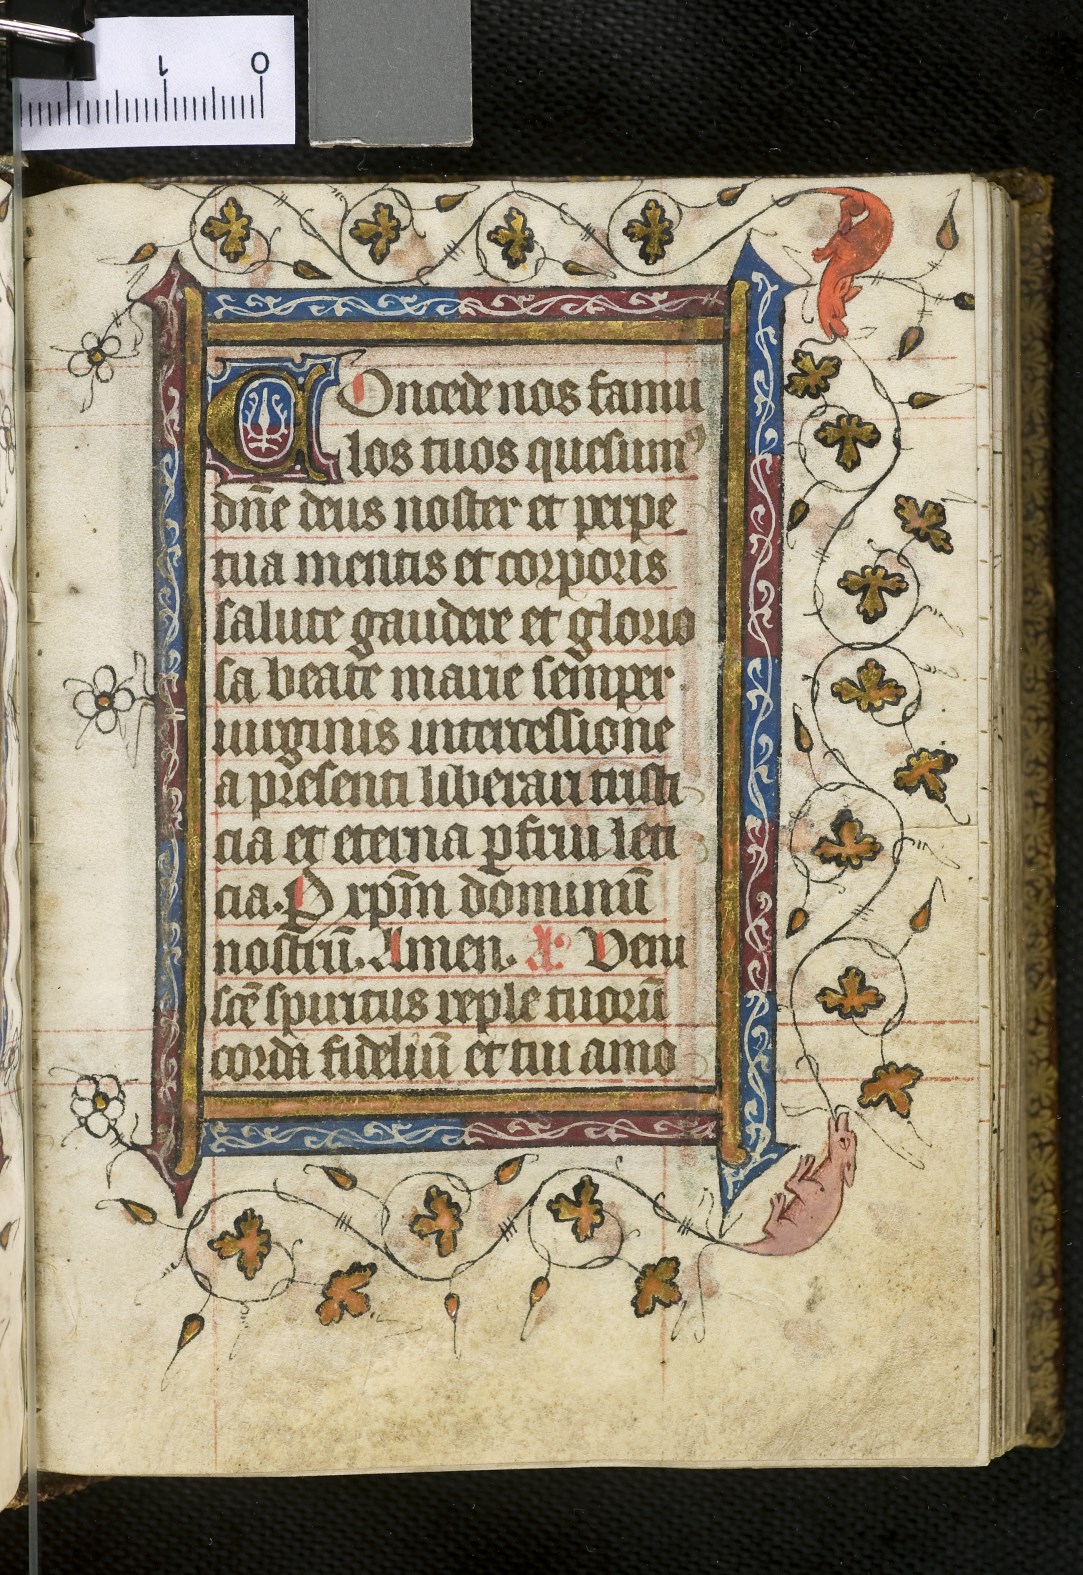 1 0
COncede nos famu
los tuos quesumꝰ
dn̄e deus noster et perpe
tua mentis et corporis
salute gaudere et glorio
sa beate marie semper
uirginis intercessione
a presenti liberari tristi
cia et eterna ꝑfrui leti
cia. P xp̄m dominū
nostrū. Amen. A Veni
sc̄e spiritus reple tuorū
corda fideliū et tui amo